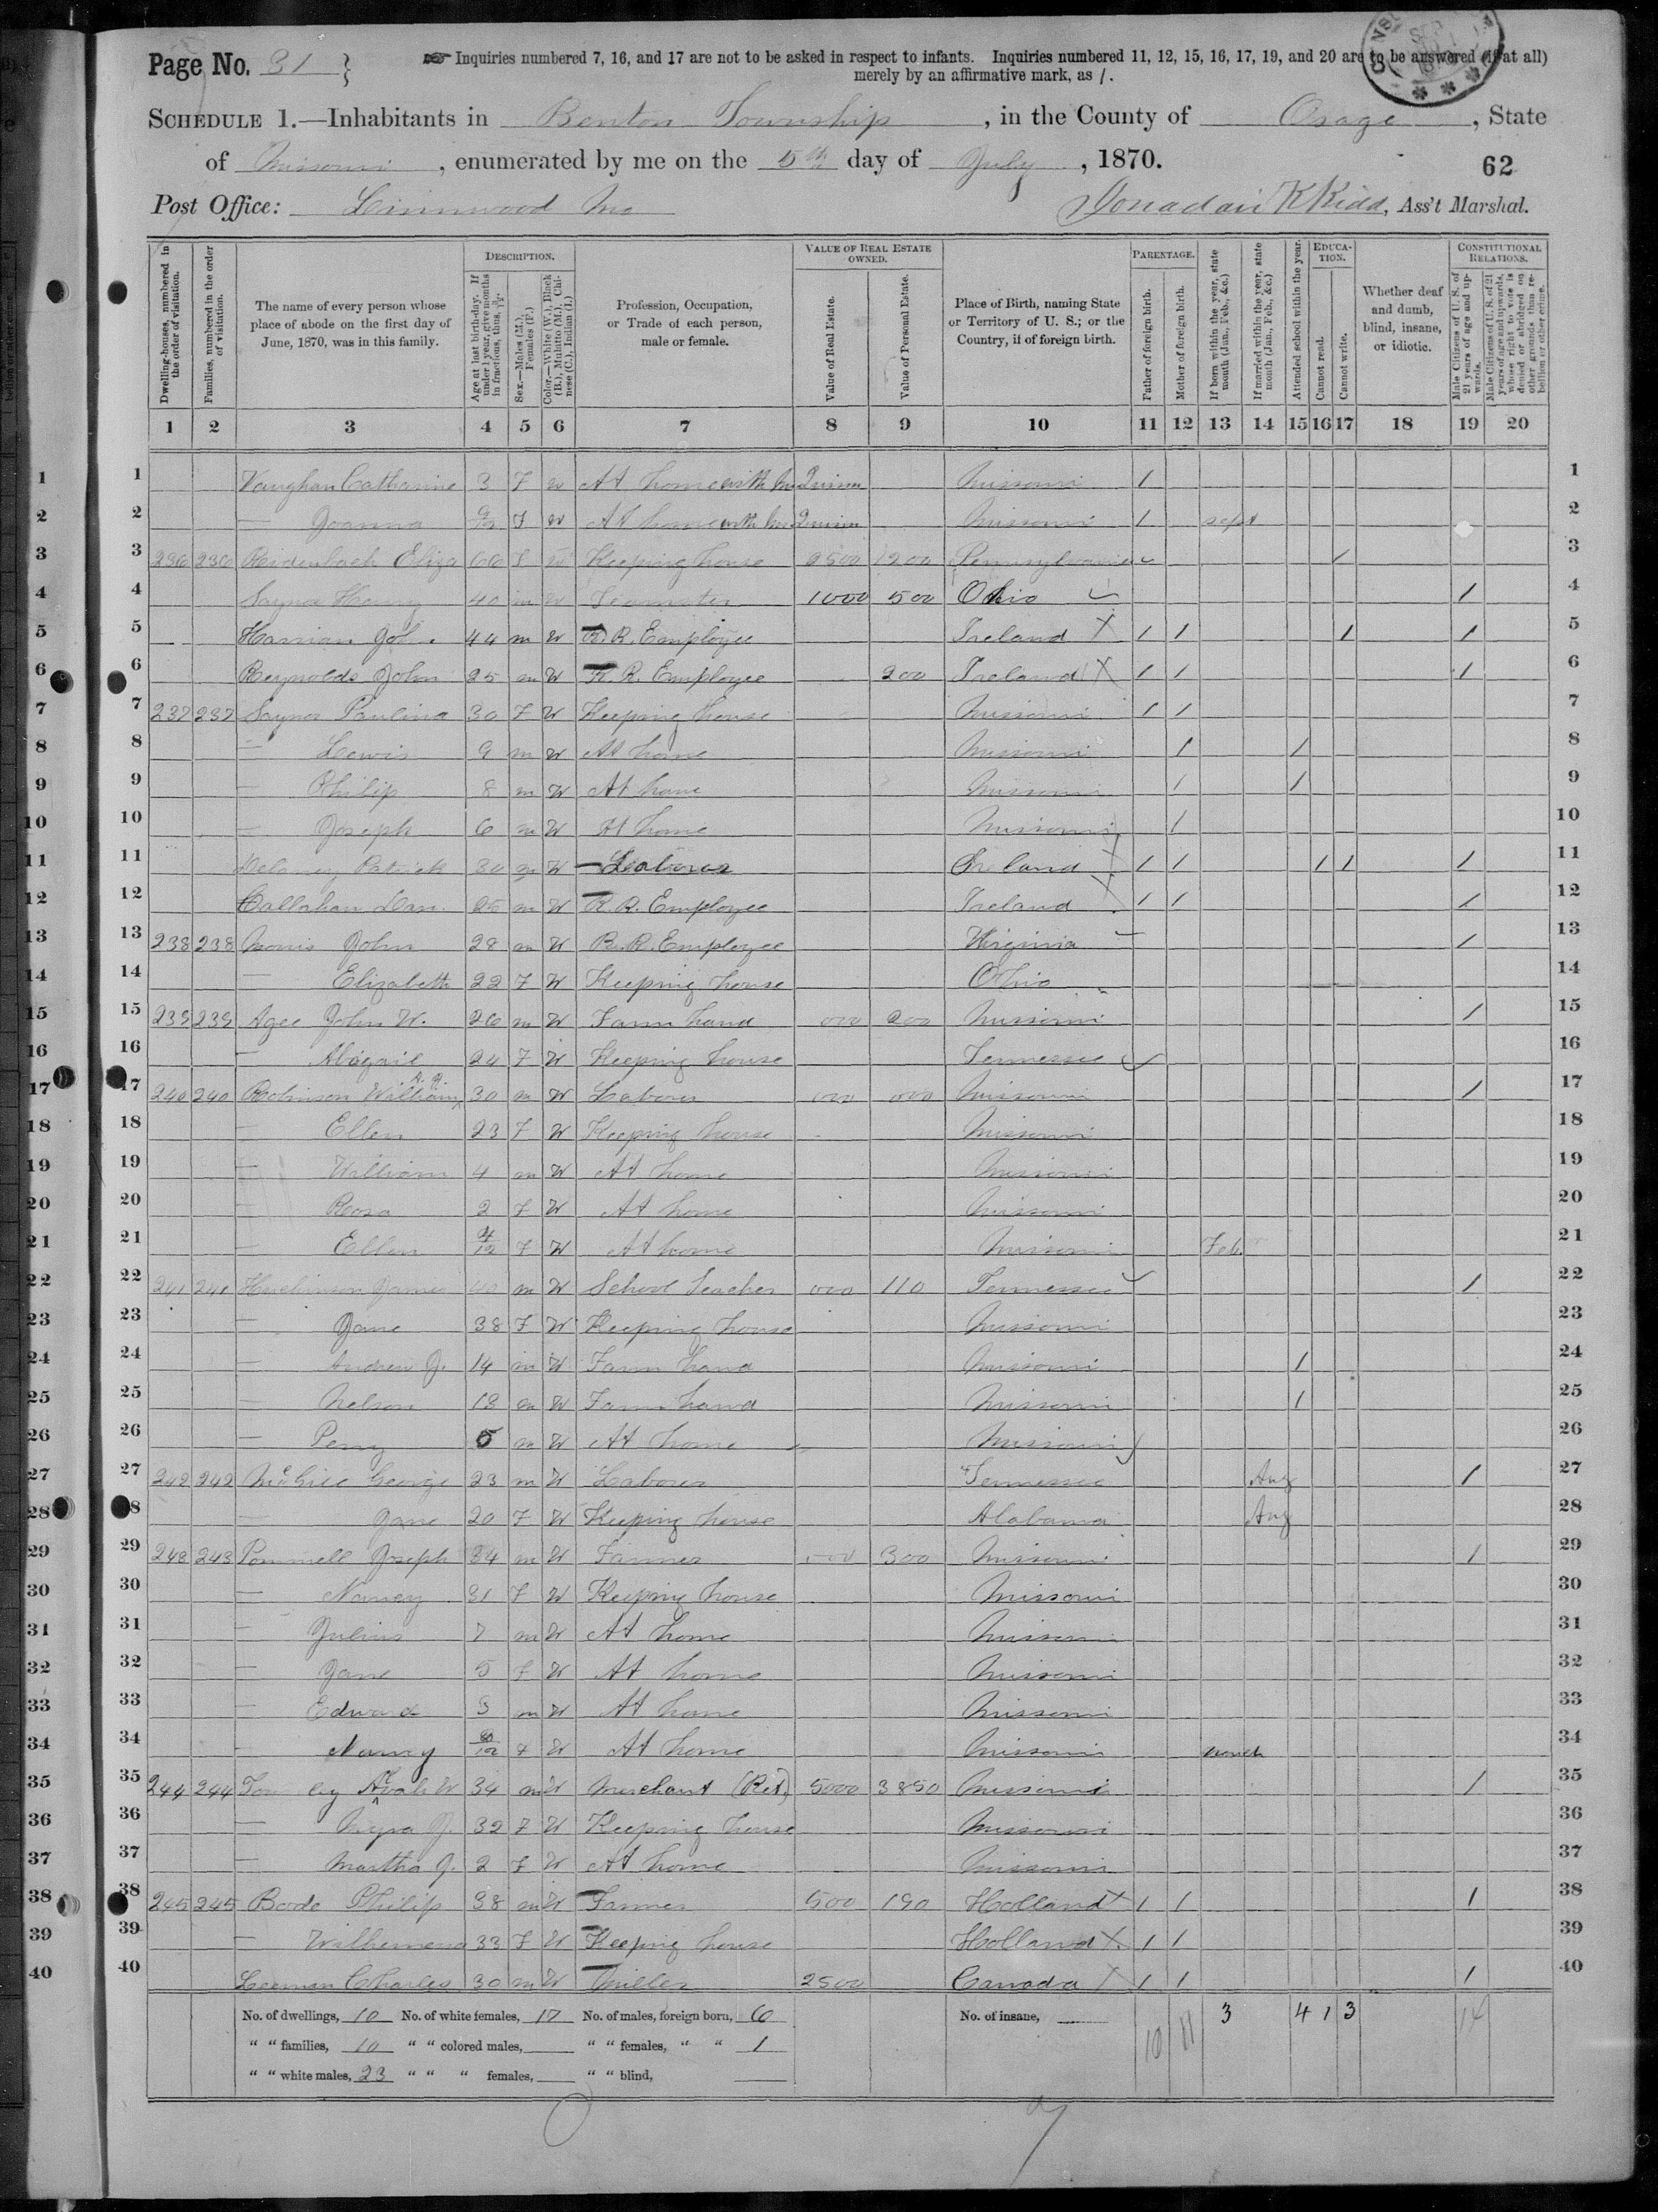 Page No. 31
Inquiries numbered 7, 16, and 17 are not to be asked in respect to infants. Inquiries numbered 11, 12, 15, 16, 17, 19, and 20 are to be answered (if at all)
merely by an affirmative mark, as /.
SCHEDULE 1.—Inhabitants in Benton Township, in the County of Osage, State
of Missouri, enumerated by me on the 5th day of July, 1870.
62
Post Office: Linnwood Mo
Kidd, Ass't Marshal.
Dwelling-houses, numbered in the order of visitation.
Families, numbered in the order of visitation.
The name of every person whose place of abode on the first day of June, 1870, was in this family.
DESCRIPTION.
Age at last birth-day. If under 1 year, give months in fractions, thus, 3/12.
Sex.—Males (M.), Females (F.)
Color.—White (W.), Black (B.), Mulatto (M.), Chinese (C.), Indian (I.)
Profession, Occupation, or Trade of each person, male or female.
VALUE OF REAL ESTATE OWNED.
Value of Real Estate.
Value of Personal Estate.
Place of Birth, naming State or Territory of U. S.; or the Country, if of foreign birth.
PARENTAGE.
Father of foreign birth.
Mother of foreign birth.
If born within the year, state month (Jan., Feb., &c.)
If married within the year, state month (Jan., Feb., &c.)
Attended school within the year.
EDUCATION.
Cannot read.
Cannot write.
Whether deaf and dumb, blind, insane, or idiotic.
CONSTITUTIONAL RELATIONS.
Male Citizens of U. S. of 21 years of age and upwards.
Male Citizens of U. S. of 21 years of age and upwards, whose right to vote is denied or abridged on other grounds than rebellion or other crime.
1 2 3 4 5 6 7 8 9 10 11 12 13 14 15 16 17 18 19 20
1 Vaughan Catharine 3 F W At home with Missouri / 1
2 — Joanna 9/12 F W At home with Missouri / Sept 2
3 236 236 Eliza 66 F W Keeping house 2500 1200 Pennsylvania / 3
4 Henry 40 m W Teamster 1000 500 Ohio / 4
5 John 44 m W R. R. Employee Ireland / / / / 5
6 Reynolds John 25 m W R. R. Employee 200 Ireland / / / 6
7 237 237 Paulina 30 F W Keeping house Missouri / / 7
8 — Lewis 9 m W At home Missouri / / 8
9 — Philip 8 m W At home Missouri / / 9
10 — Joseph 6 m W At home Missouri / 10
11 Delaney Patrick 30 m W Laborer Ireland / / / / / 11
12 Callahan Dan. 25 m W R. R. Employee Ireland / / / 12
13 238 238 Morris John 28 m W R. R. Employee Virginia / 13
14 — Elizabeth 22 F W Keeping house Ohio 14
15 239 239 Agee John W. 26 m W Farm hand 000 200 Missouri / 15
16 — Abagail 24 F W Keeping house Tennessee 16
17 240 240 Robinson William 30 m W Laborer 000 000 Missouri / 17
18 — Ellen 23 F W Keeping house Missouri 18
19 — William 4 m W At home Missouri 19
20 — Rosa 2 F W At home Missouri 20
21 — Ellen 4/12 F W At home Missouri Feb. 21
22 241 241 Hutchinson James 40 m W School Teacher 000 110 Tennessee / 22
23 — Jane 38 F W Keeping house Missouri 23
24 — Andrew J. 14 m W Farm hand Missouri / 24
25 — Nelson 13 m W Farm hand Missouri / 25
26 — Perry 5 m W At home Missouri 26
27 242 242 George 23 m W Laborer Tennessee Aug / 27
28 — Jane 20 F W Keeping house Alabama Aug 28
29 243 243 Pommell Joseph 34 m W Farmer 000 300 Missouri / 29
30 — Nancy 31 F W Keeping house Missouri 30
31 — Julius 7 m W At home Missouri 31
32 — Jane 5 F W At home Missouri 32
33 — Edward 3 m W At home Missouri 33
34 — Nancy F W At home Missouri March 34
35 244 244 34 m W Merchant (Ret) 5000 3850 Missouri / 35
36 — Myra J. 32 F W Keeping house Missouri 36
37 — Martha J. 2 F W At home Missouri 37
38 245 245 Bode Philip 38 m W Farmer 500 190 Holland / / / 38
39 — Wilhemena 33 F W Keeping house Holland / / 39
40 Charles 30 m W Miller 2500 Canada / / / 40
No. of dwellings, 10 No. of white females, 17 No. of males, foreign born, 6 No. of insane, 10 11 3 4 1 3 14
" " families, 10 " " colored males, " " females, " " 1
" " white males, 23 " " " females, " " blind,